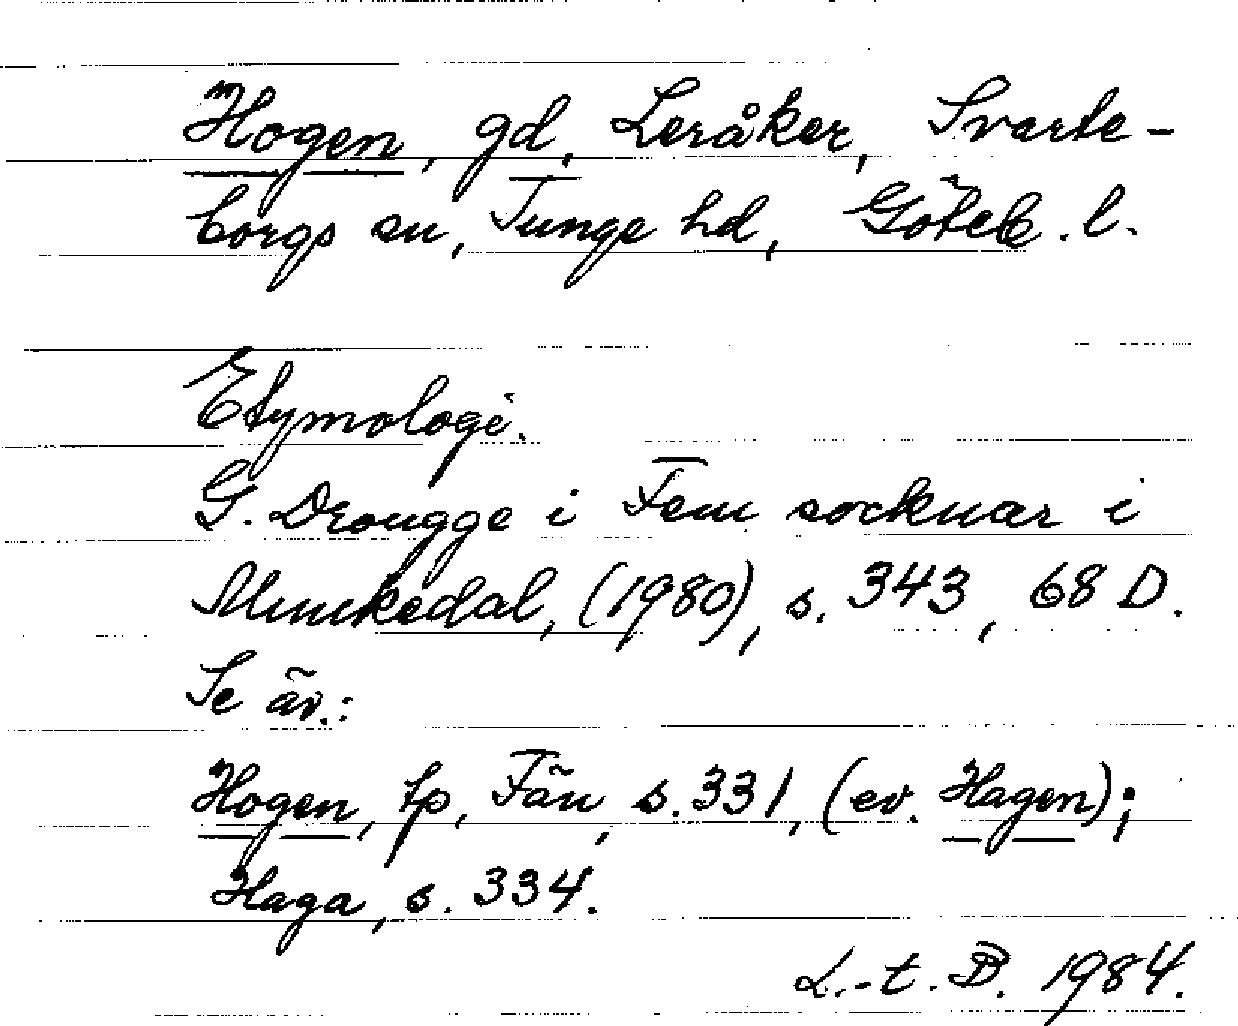 Hogen, gd, Leråker, Svarte-
borgs sn, Tunge hd, Göteb. l.
Etymologi.
G. Drougge i Fem socknar i
Munkedal, (1980), s. 343, 68 D.
Se äv.:
Hogen, tp, Fän, s. 331, (ev. Hagen);
Haga, s. 334.
L.-t. B. 1984.